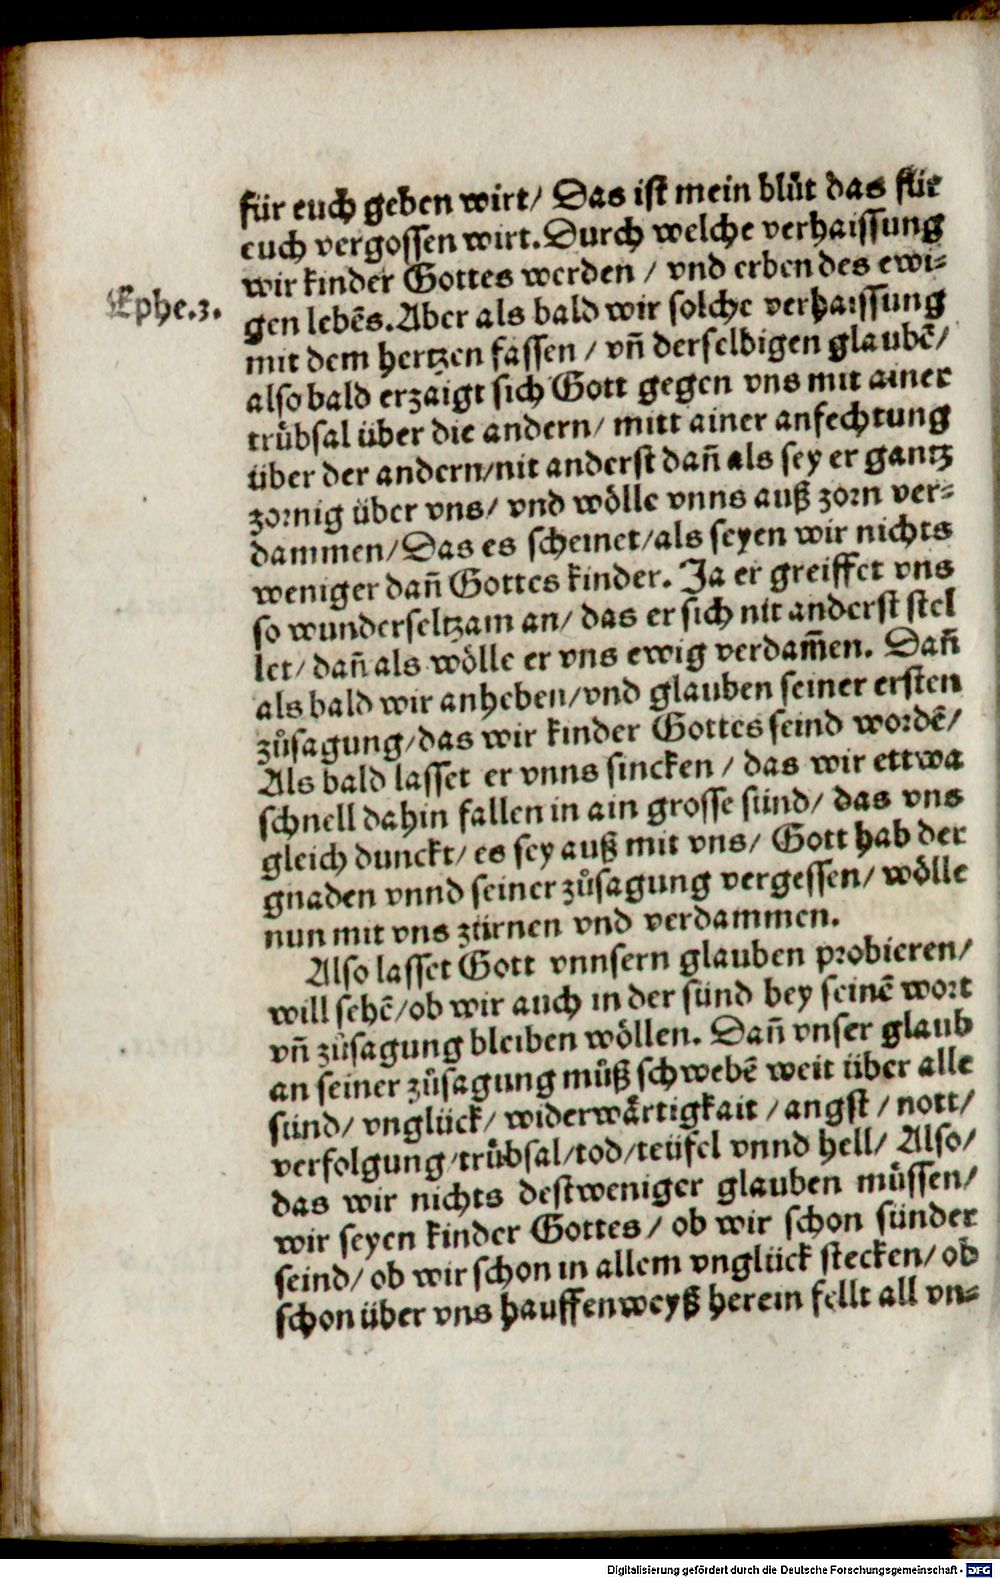 für euch geben wirt/ Das ist mein blůt das für
euch vergossen wirt. Durch welche verhaissung
wir kinder Gottes werden / vnd erben des ewi-
Ephe.3.
gen lebẽs. Aber als bald wir solche verhaissung
mit dem hertzen fassen / vñ derselbigen glaubẽ/
also bald erzaigt sich Gott gegen vns mit ainer
trůbsal über die andern/ mitt ainer anfechtung
über der andern/nit anderst dañ als sey er gantz
zornig über vns/ vnd wölle vnns auß zorn ver-
dammen/ Das es scheinet/als seyen wir nichts
weniger dañ Gottes kinder. Ja er greiffet vns
so wunderseltzam an/ das er sich nit anderst stel
let/ dañ als wölle er vns ewig verdam̃en. Dañ
als bald wir anheben/vnd glauben seiner ersten
zůsagung/das wir kinder Gottes seind wordẽ/
Als bald lasset er vnns sincken / das wir ettwa
schnell dahin fallen in ain grosse sünd/ das vns
gleich dunckt/ es sey auß mit vns/ Gott hab der
gnaden vnnd seiner zůsagung vergessen/ wölle
nun mit vns zürnen vnd verdammen.
Also lasset Gott vnnsern glauben probieren/
will sehẽ/ob wir auch in der sünd bey seinẽ wort
vñ zůsagung bleiben wöllen. Dañ vnser glaub
an seiner zůsagung můß schwebẽ weit über alle
sünd/ vnglück/ widerwärtigkait / angst / nott/
verfolgung/trůbsal/tod/teüfel vnnd hell/ Also/
das wir nichts destweniger glauben müssen/
wir seyen kinder Gottes / ob wir schon sünder
seind/ ob wir schon in allem vnglück stecken/ ob
schon über vns hauffenweyß herein fellt all vn-
Digitalisierung gefördert durch die Deutsche Forschungsgemeinschaft - DFG